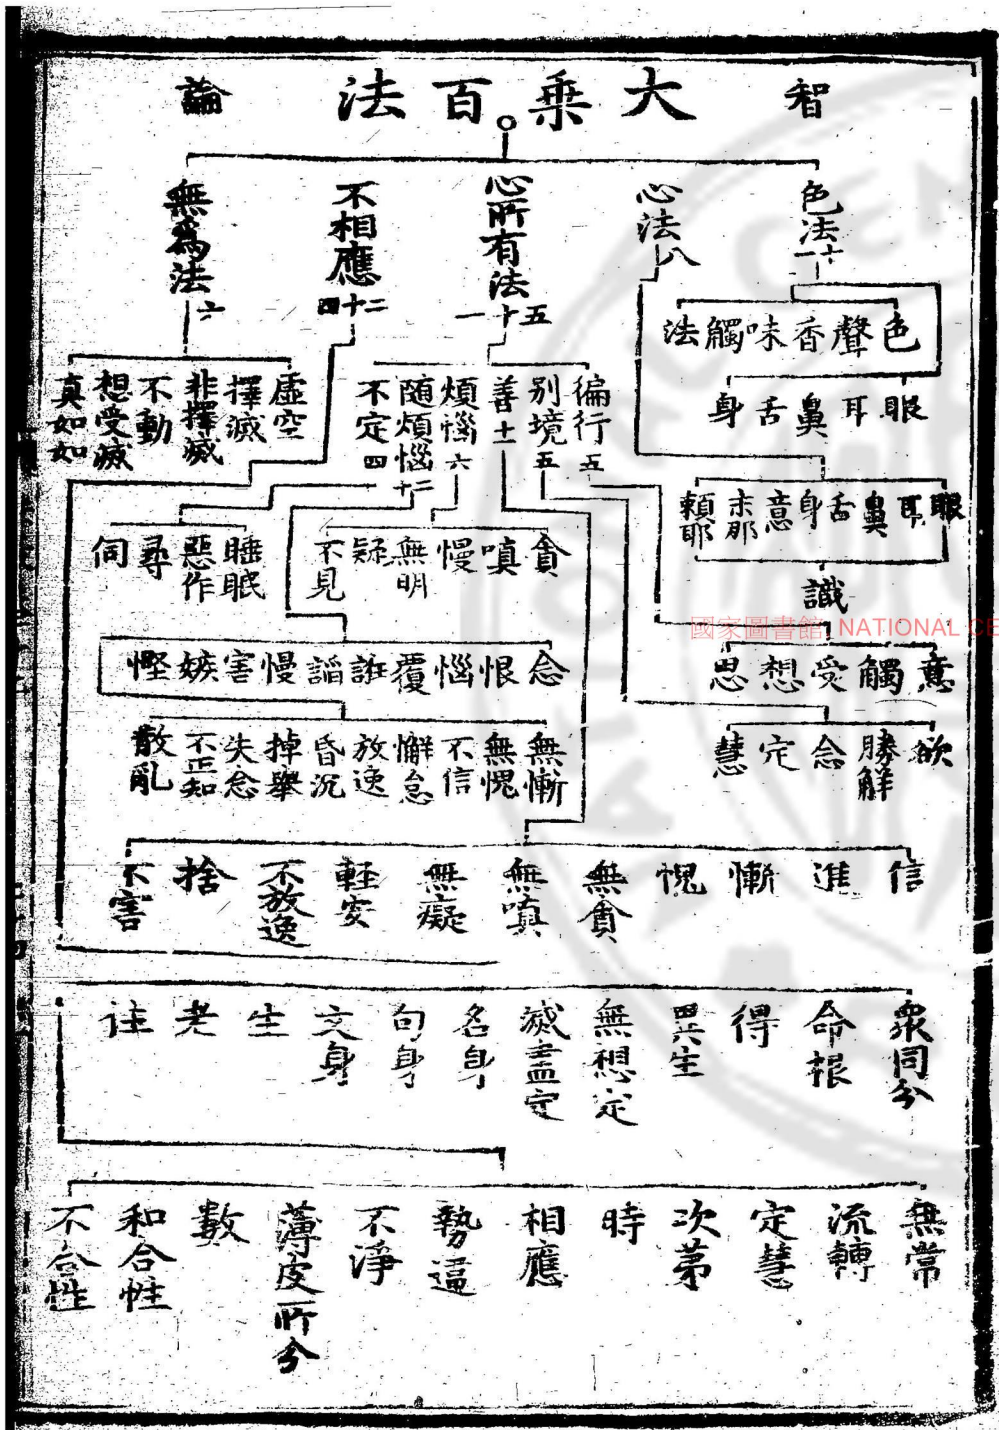 智 大乘百法 論
色法十一
心法八
心所有法五十一
不相應二十四
無為法六
色聲香味觸法
眼耳鼻舌身
眼耳鼻舌身意末那賴耶
識
徧行五
別境五
善十一
煩惱六
随煩惱二十
不定四
虛空
擇滅
非擇滅
不動
想受滅
真如如
意觸受想思
欲 勝解 念 定 慧
貪 嗔 慢 無明 疑 不見
睡眠 惡作 尋 伺
忿恨惱覆誑謟慢害嫉慳
無慚 無愧 不信 懈怠 放逸 昏沉 掉舉 失念 不正知 散亂
信 進 慚 愧 無貪 無嗔 無癡 輕安 不放逸 捨 不害
衆同分 命根 得 異生 無想定 滅盡定 名身 句身 文身 生 老 住
無常 流轉 定慧 次第 時 相應 勢逼 不淨 薄皮所分 數 和合性 不合性
國家圖書館 NATIONAL CE